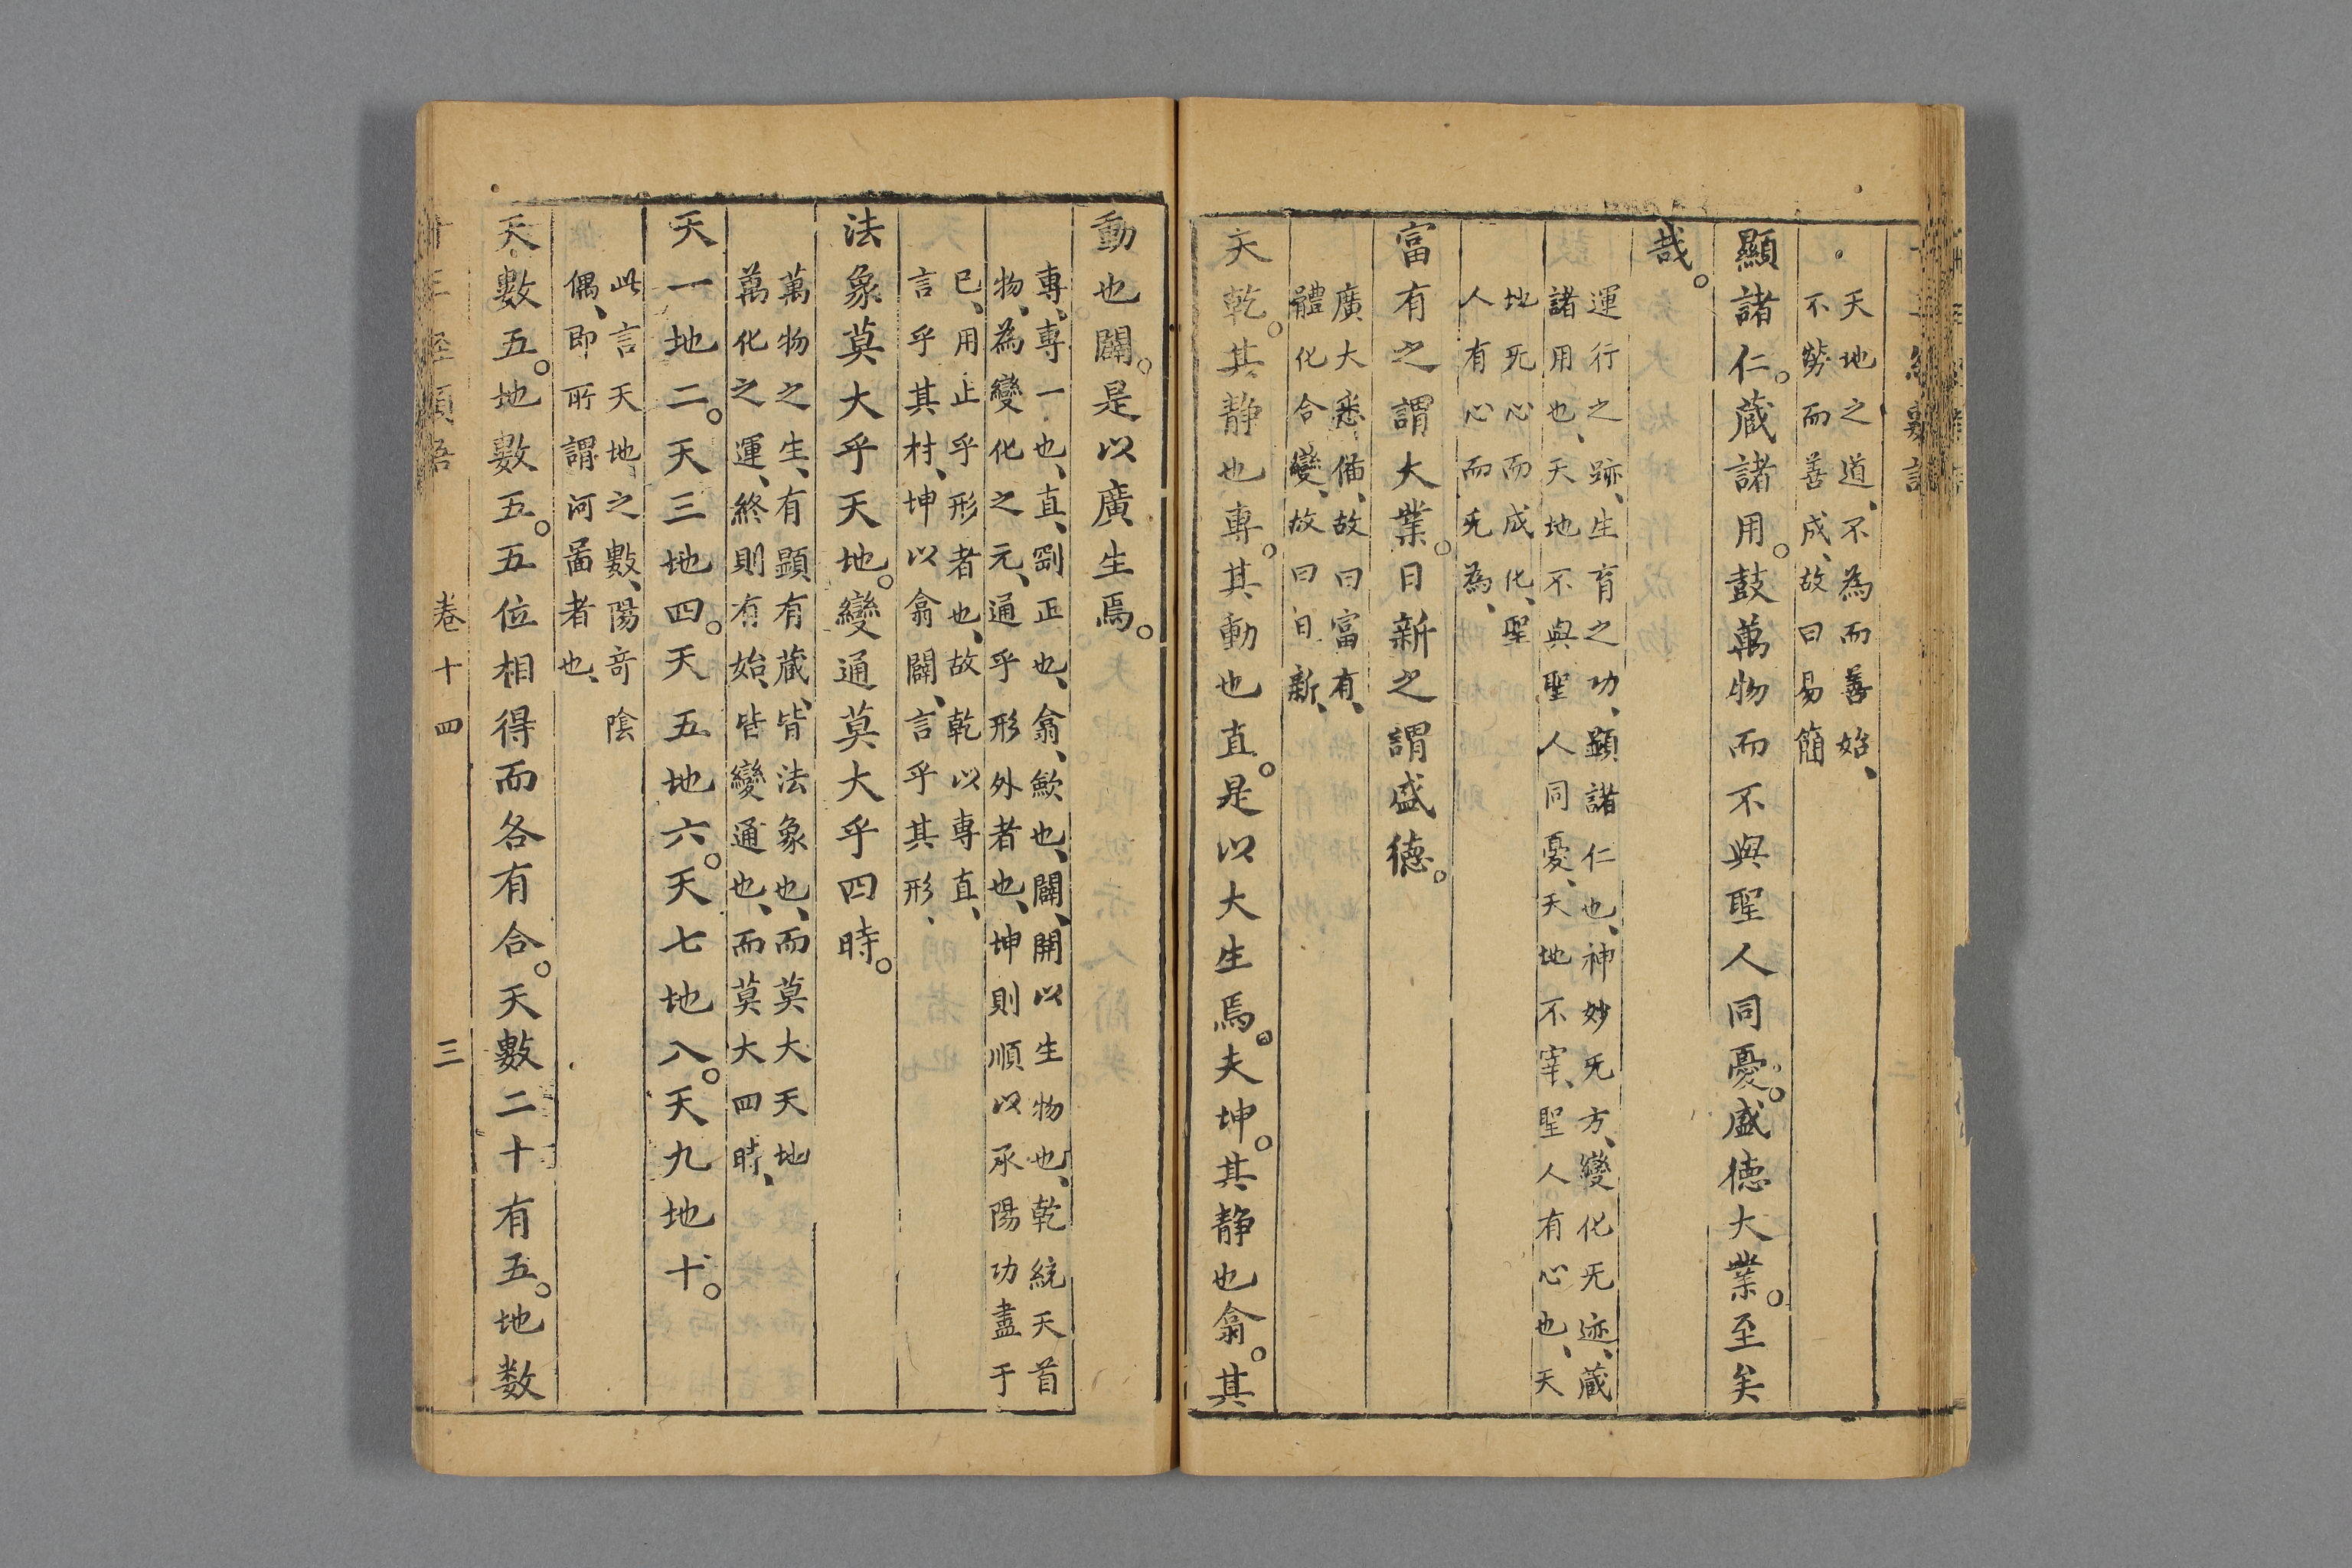 天地之道、不為而善始、
不勞而善成、故曰易簡
顯諸仁。蔵諸用。鼓萬物而不與聖人同憂。盛德大業。至矣
哉。
運行之跡、生育之功、顕諸仁也、神妙无方、變化无迹、蔵
諸用也、天地不與聖人同憂、天地不宰、聖人有心也、天
地无心而成化、聖
人有心而无為、
富有之謂大業。日新之謂盛德。
廣大悉備、故曰富有、
體化合變、故曰日新、
夫乾。其静也專。其動也直。是以大生焉。夫坤。其静也翕。其
動也闢。是以廣生焉。
專、專一也、直、剛正也、翕、歛也、闢、開以生物也、乾統天首
物、為變化之元、通乎形外者也、坤則順以承陽功盡于
已、用止乎形者也、故乾以專直、
言乎其材、坤以翕闢、言乎其形、
法象莫大乎天地。變通莫大乎四時。
萬物之生、有顕有蔵、皆法象也、而莫大天地
萬化之運、終則有始、皆變通也、而莫大四時、
天一地二。天三地四。天五地六。天七地八。天九地十。
此言天地之數、陽竒陰
偶、即所謂河啚者也、
天數五。地數五。五位相得而各有合。天數二十有五。地数
卷十四 三